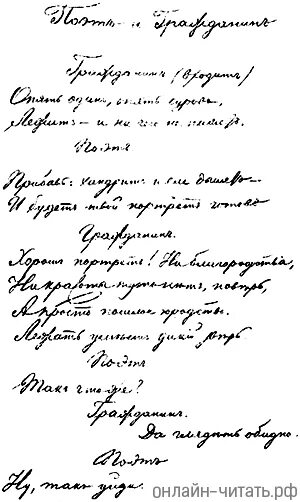 Поэтъ и Гражданинъ
Гражданинъ (входитъ)
Опять одинъ, опять суровъ,
Лежитъ – и ничего не пишетъ.
Поэтъ
Прибавь: хандритъ и еле дышетъ –
И будетъ твой портретъ готовъ
Гражданинъ.
Хорошъ портретъ! Ни благородства,
Ни красоты въ немъ нѣтъ, повѣрь,
А просто пошлое юродство.
Лежать умѣетъ дикій звѣрь
Поэтъ
Такъ что же?
Гражданинъ.
Да глядѣть обидно.
Поэтъ
Ну, такъ уйди.
онлайн-читать.рф